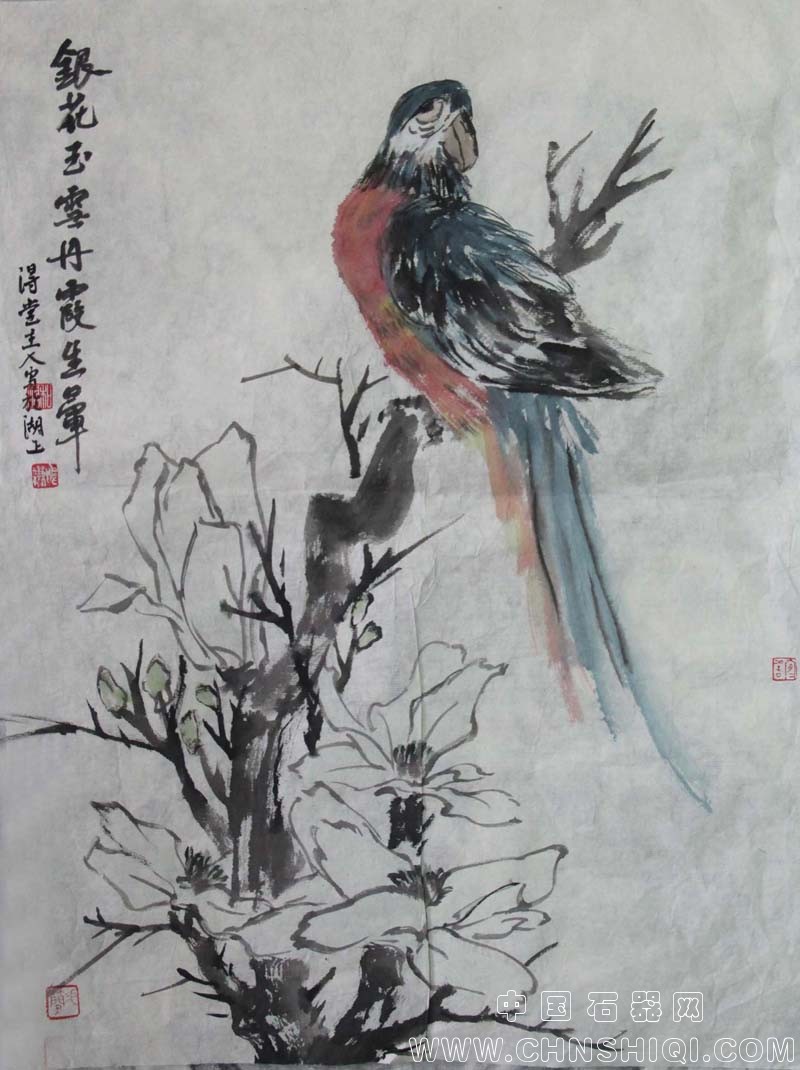 銀花玉雪丹霞生暈
得堂主人寫於湖上
中国石器网
WWW.CHNSHIQI.COM